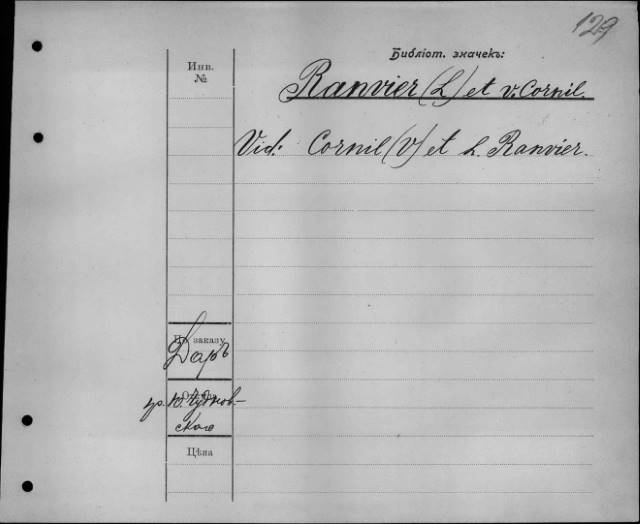 129
Библіот. значекъ:
Инв.
№
Ranvier (L) et v. Cornil.
Vid: Cornil (V) et L. Ranvier.
По заказу
Даръ
пр. Ю. Чудновскаго
Цѣна